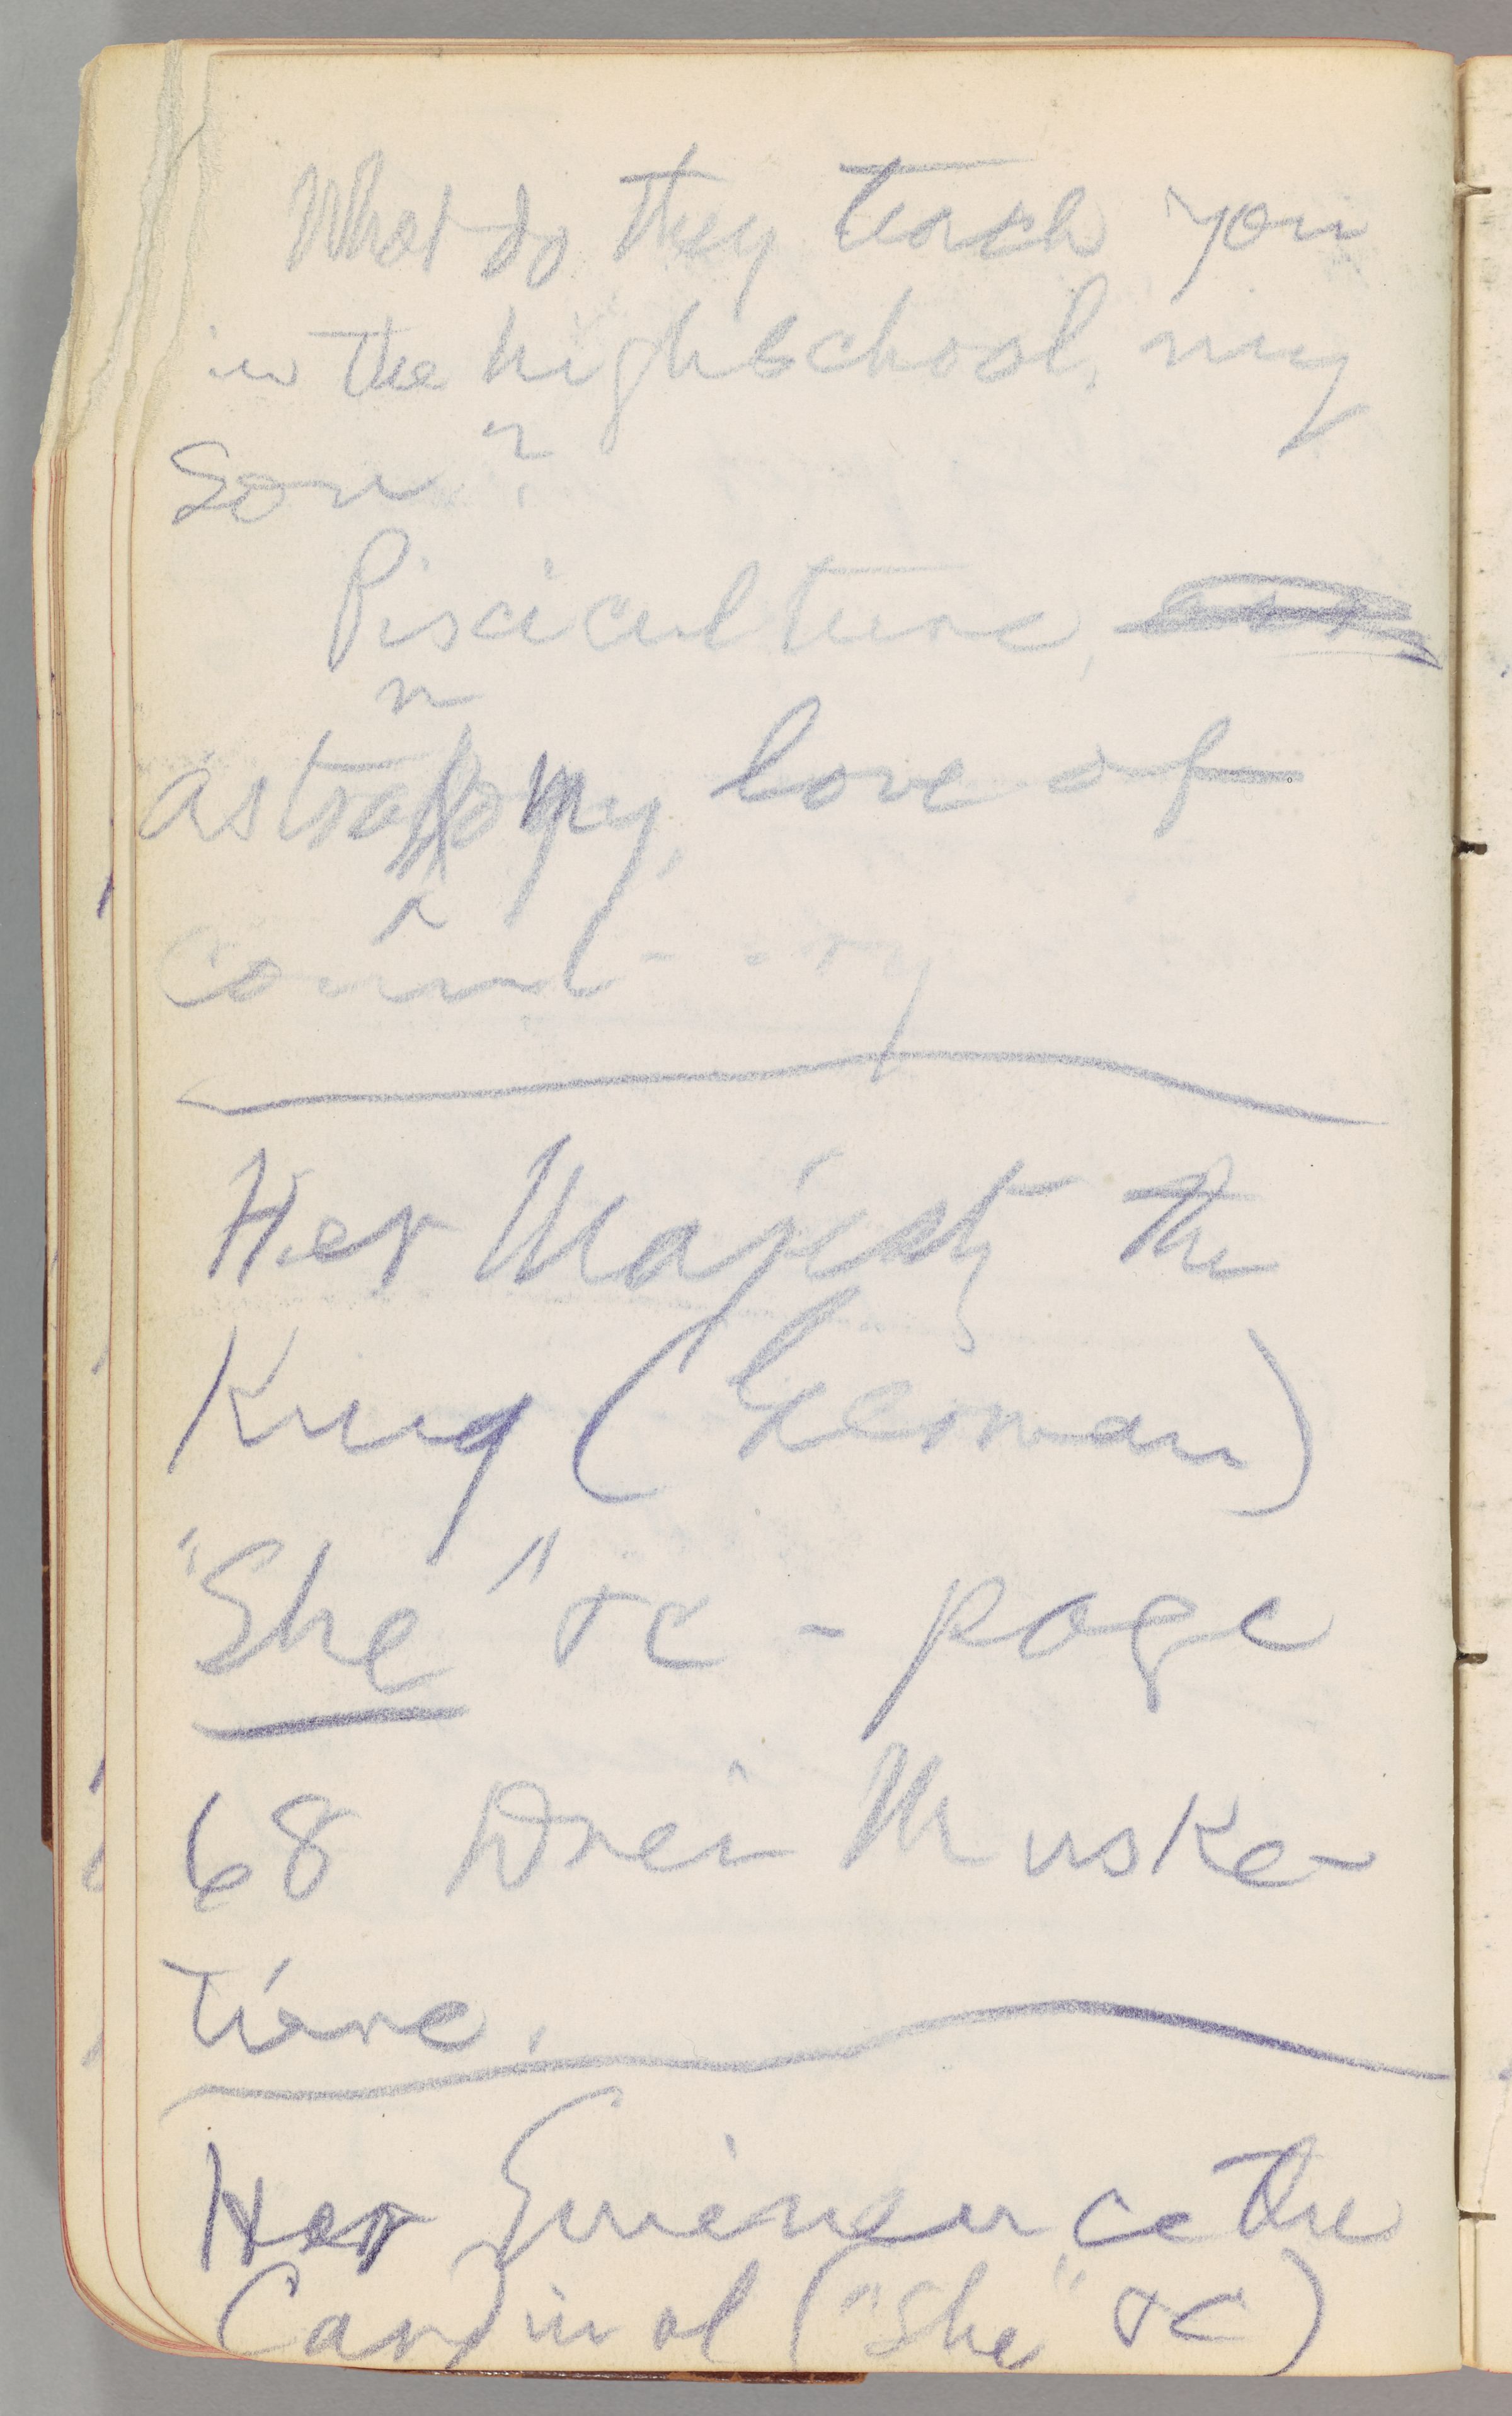 What do they teach you
in the highschool, my
Son?
Pisciculture,
astronomy, love of
country
Her Majesty the
King (German)
"She" &c - page
68 Drei Muske-
tiere.
Her Eminence the
Cardinal ("She" &c)